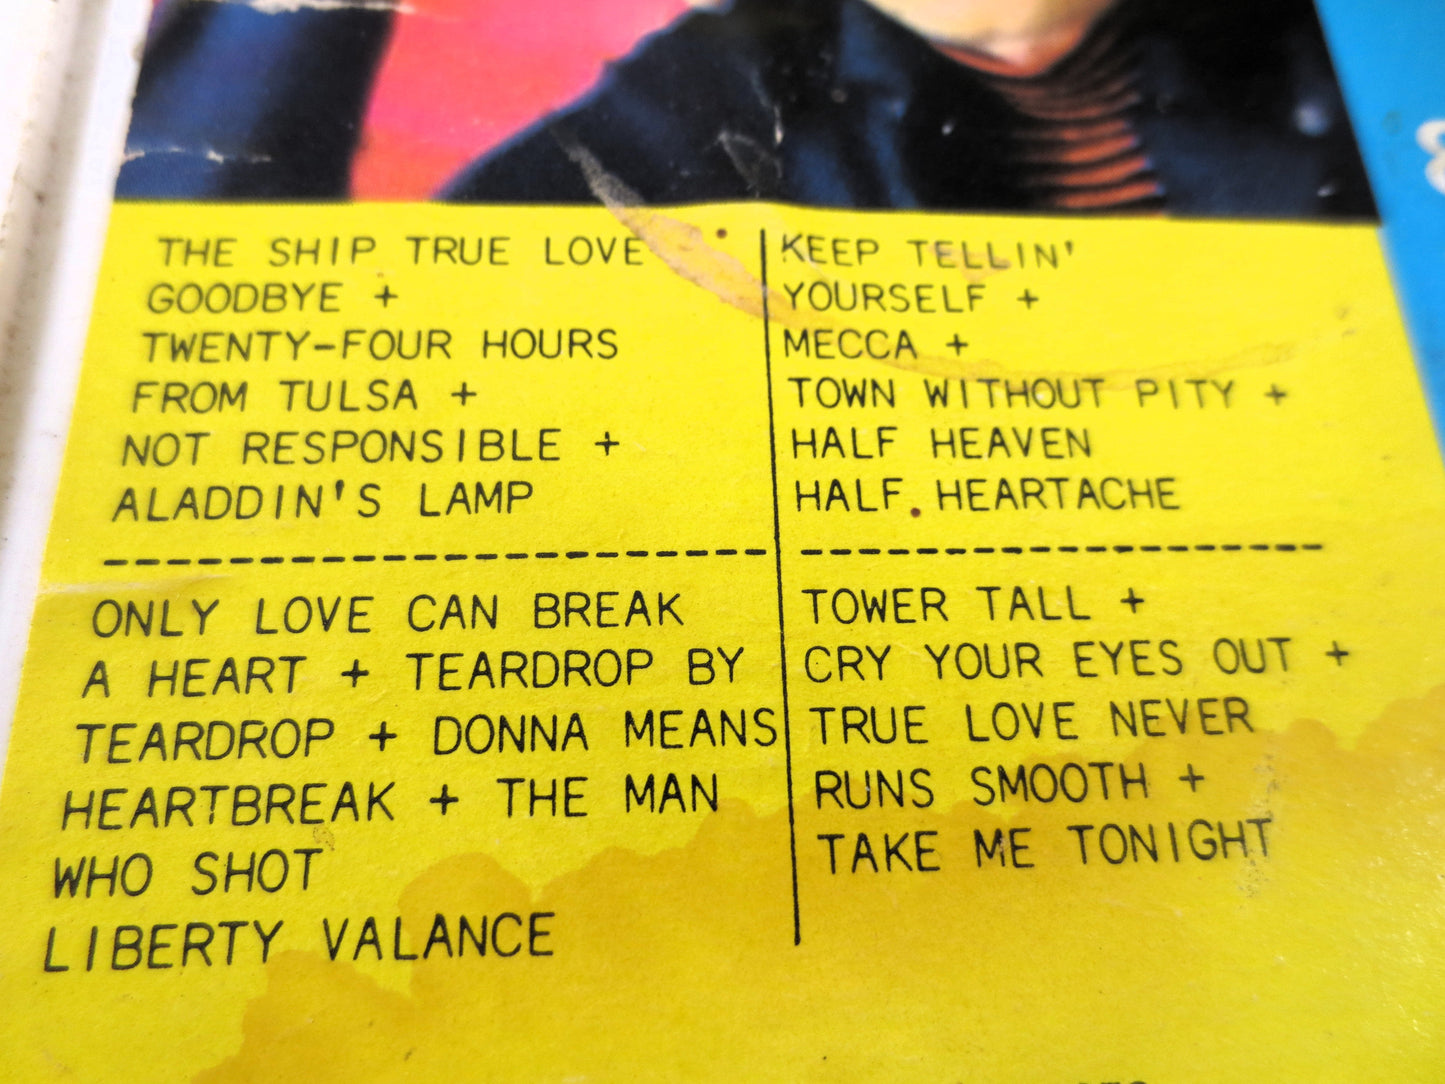 THE SHIP TRUE LOVE
GOODBYE +
TWENTY-FOUR HOURS
FROM TULSA +
NOT RESPONSIBLE +
ALADDIN'S LAMP
KEEP TELLIN'
YOURSELF +
MECCA +
TOWN WITHOUT PITY +
HALF HEAVEN
HALF HEARTACHE
ONLY LOVE CAN BREAK
A HEART + TEARDROP BY
TEARDROP + DONNA MEANS
HEARTBREAK + THE MAN
WHO SHOT
LIBERTY VALANCE
TOWER TALL +
CRY YOUR EYES OUT +
TRUE LOVE NEVER
RUNS SMOOTH +
TAKE ME TONIGHT